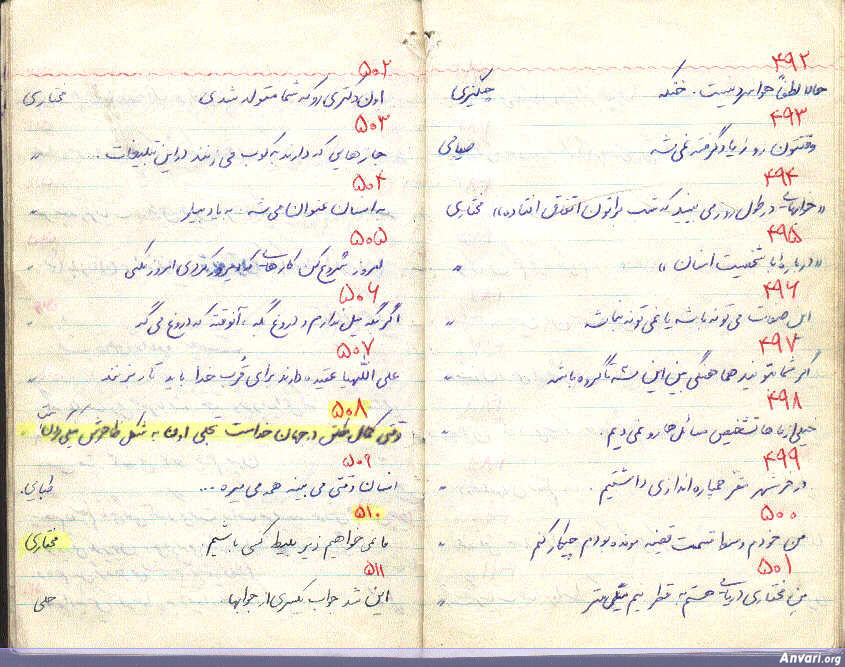 ۴۹۲
حالا لطفاً حواس پرت نیست. خنگه چنگیزی
۴۹۳
وقتتون رو زیاد گرفته نمی شه صیامی
۴۹۴
«خوابهائیکه در طول روز می بینید که شب براتون اتفاق افتاده» مختاری
۴۹۵
«درباره با شخصیت انسان» "
۴۹۶
این صلوات می تونه باشه یا نمی تونه نباشه "
۴۹۷
اگر شما بتونید هماهنگی بین این شه تا گروه باشد "
۴۹۸
خیلی از ماها تشخیص مسائل هارو نمی دیم. "
۴۹۹
در خرمشهر نفر خمپاره اندازی داشتیم. "
۵۰۰
من خودم وسط قسمت قضیه مونده بودم چیکار کنم "
۵۰۱
من مختاری دریائی هستم به قطر نیم میلی متر "
۵۰۲
اون دکتری رو که شما متولد شدی مختاری
۵۰۳
جازهایی که دارند بکوب می زنند در این تبلیغات.. "
۵۰۴
به انسان عنوان می شه. به یاد بیار "
۵۰۵
امروز شروع کن کارهائیکه دیروز نکردی امروز بکنی "
۵۰۶
اگر بگه میل ندارم و دروغ بگه، آنوقته که دروغ می گه "
۵۰۷
علی اللهیا عقیده دارند برای قُرب خدا باید تار بزنند "
۵۰۸
وقتی کمال مطلق در جهان خداست تجلی اون به شکل ظاهرش میگی رون "
۵۰۹
انسان وقتی می بینه همه می میره ... طبایی.
۵۱۰
ما نمی خواهیم زیر بلیط کسی باشیم. مختاری
۵۱۱
این شد جواب یکسری از جوابها حلی
Anvari.org